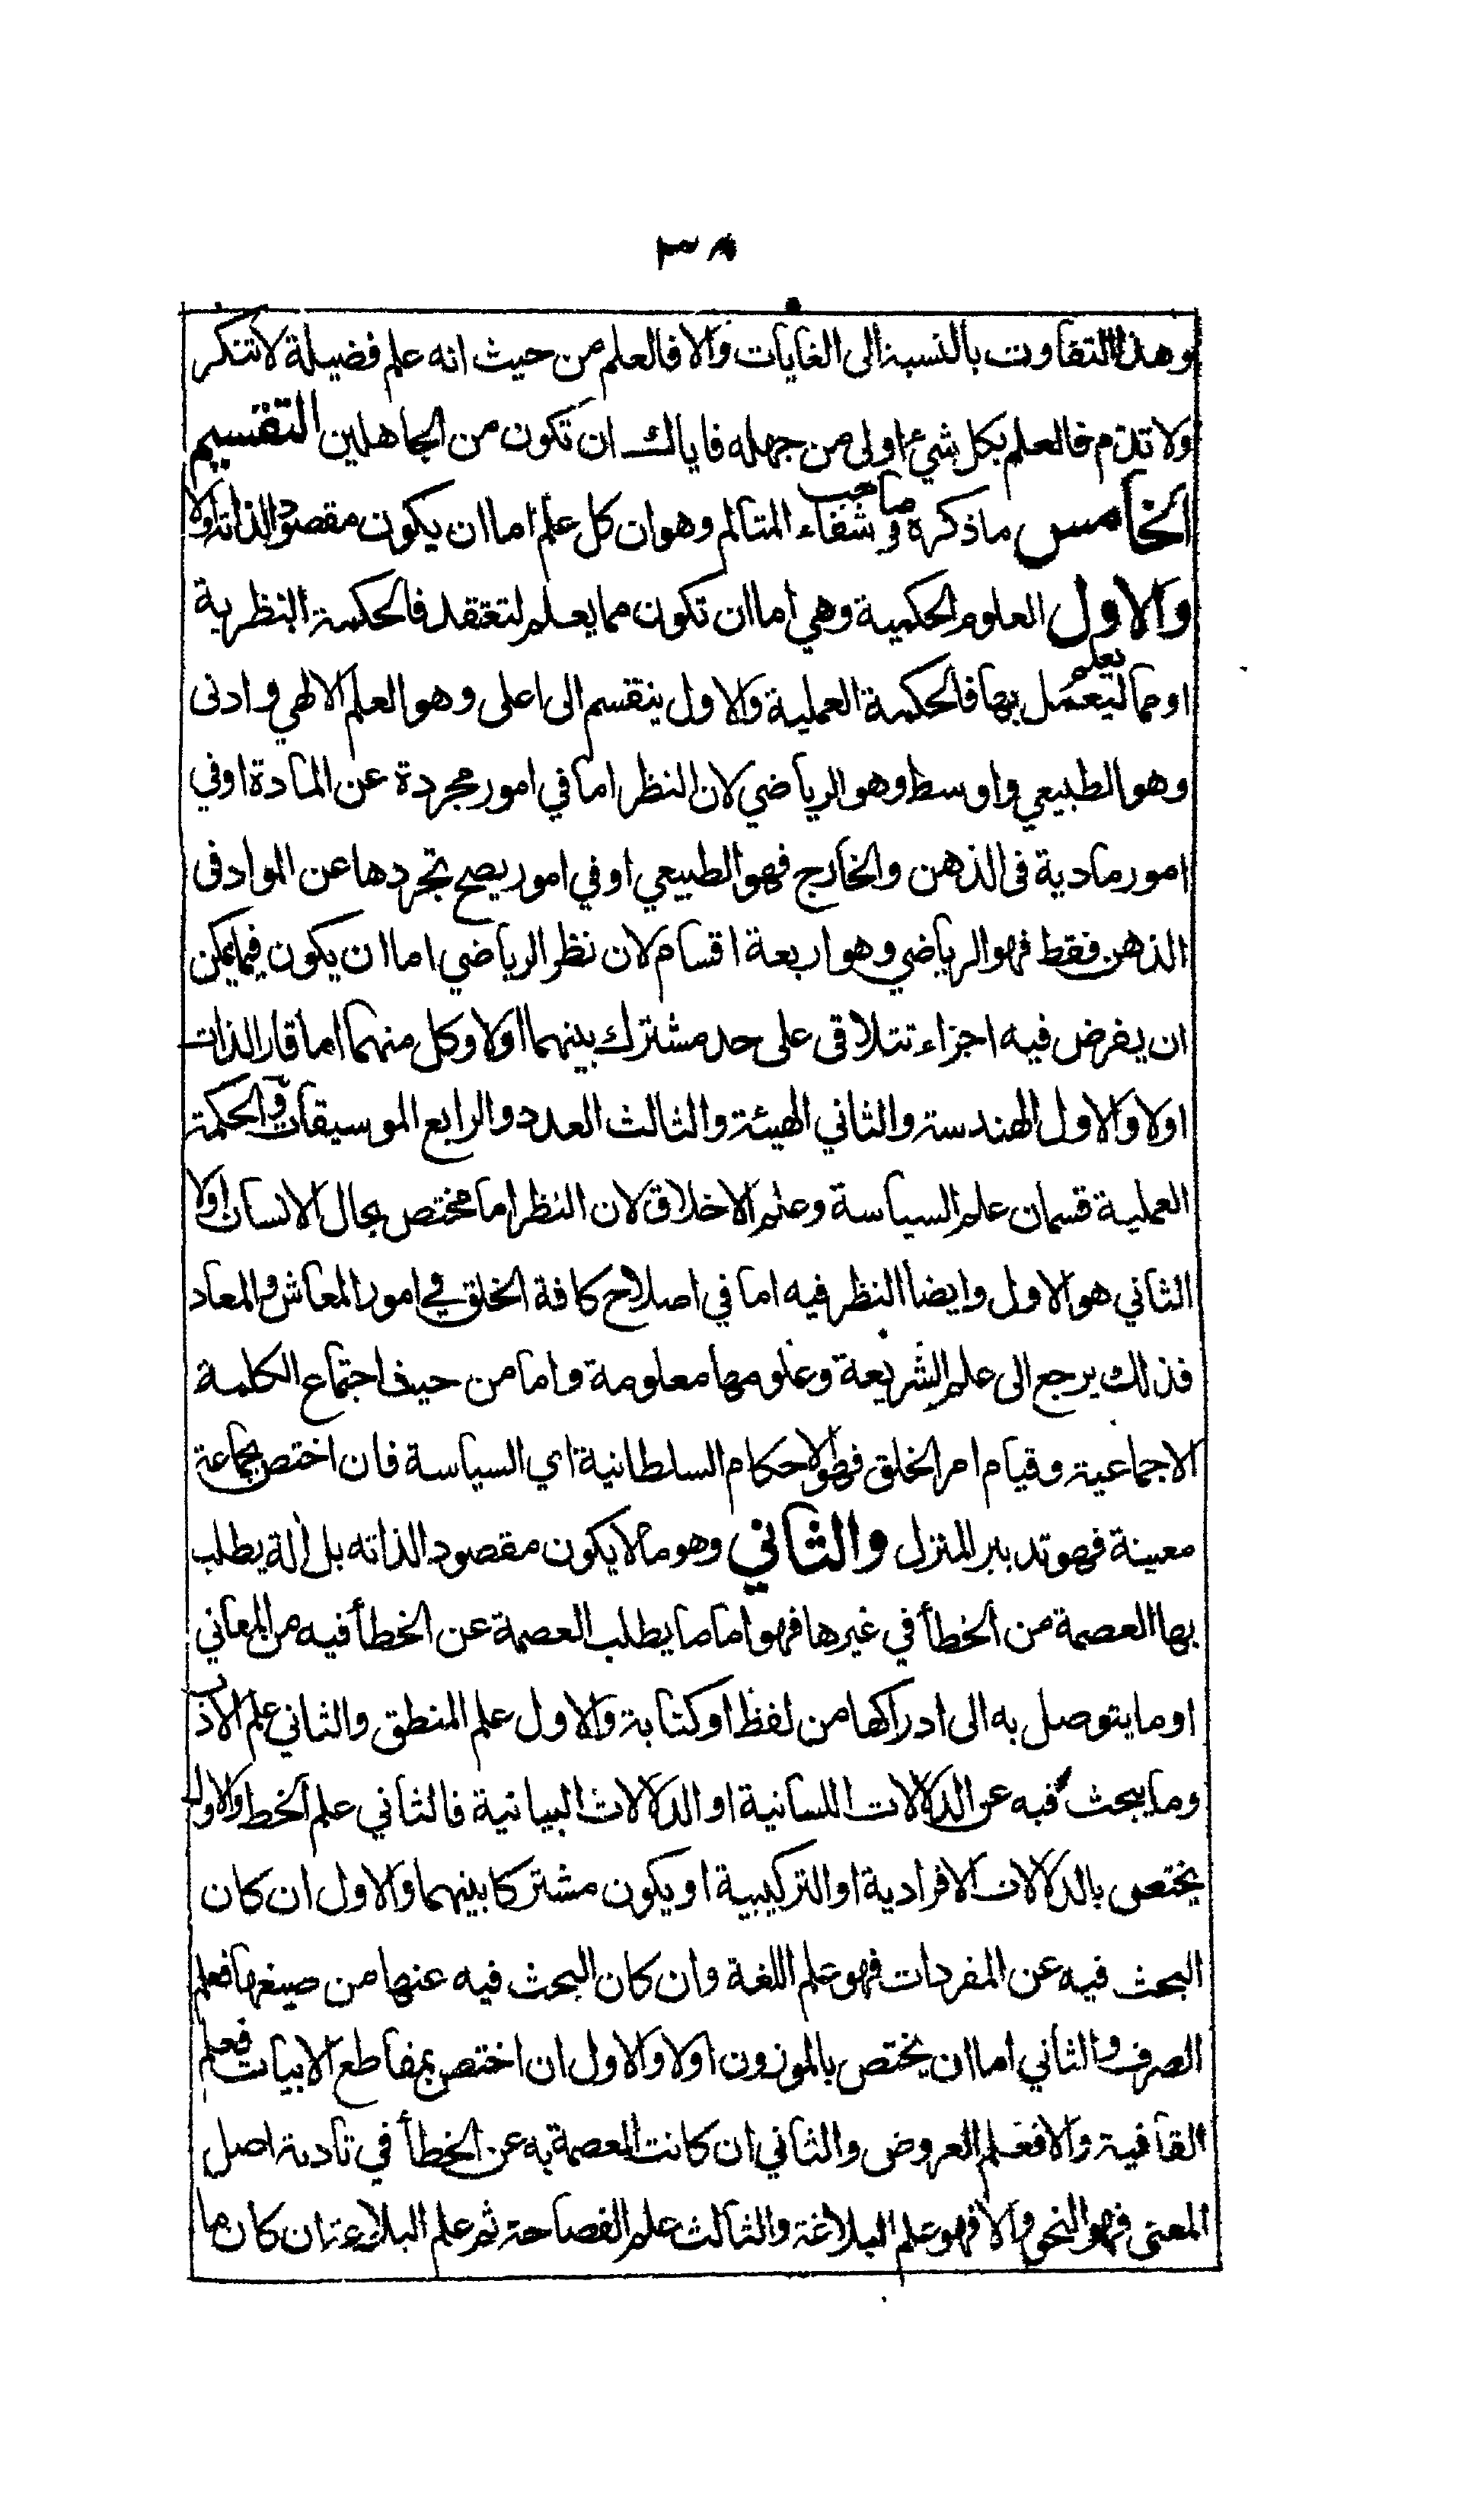 ٣٨
وهذا التفاوت بالنسبة الى الغايات والا فالعلم من حيث انه علم فضيلة لا تنكر
ولا تذم فالعلم بكل شيء اولى من جهله فاياك ان تكون من الجاهلين التقسيم
الخامس ما ذكره صاحب شفاء المتألم وهو ان كل علم اما ان يكون مقصودا لذاته اولا
والاول العلوم الحكمية وهي اما ان تكون مما يعلم لتعتقد فالحكمة النظرية
او مما يعلم ليعمل بها فالحكمة العملية والاول ينقسم الى اعلى وهو العلم الالهي وادنى
وهو الطبيعي واوسط وهو الرياضي لان النظر اما في امور مجردة عن المادة اوفي
امور مادية فى الذهن والخارج فهو الطبيعي اوفي امور يصح تجردها عن المواد فى
الذهن فقط فهو الرياضي وهو اربعة اقسام لان نظر الرياضي اما ان يكون فيما يمكن
ان يفرض فيه اجزاء تتلاقى على حد مشترك بينهما اولا وكل منهما اما قار الذات
اولا والاول الهندسة والثاني الهيئة والثالث العدد والرابع الموسيقات والحكمة
العملية قسمان علم السياسة وعلم الاخلاق لان النظر اما مختص بحال الانسان اولا
الثاني هو الاول وايضا النظر فيه اما في اصلاح كافة الخلق في امور المعاش والمعاد
فذلك يرجع الى علم الشريعة وعلومها معلومة واما من حيث اجتماع الكلمة
الاجماعية وقيام امر الخلق فهو الاحكام السلطانية اي السياسة فان اختص بجماعة
معينة فهو تدبير المنزل والثاني وهو ما لا يكون مقصودا لذاته بل آلة يطلب
بها العصمة من الخطأ في غيرها فهو اما ما يطلب العصمة عن الخطأ فيه من المعاني
او ما يتوصل به الى ادراكها من لفظ او كتابة والاول علم المنطق والثاني علم الادب
وما يبحث فيه عن الدلالات اللسانية او الدلالات البيانية فالثاني علم الخط والاول
يختص بالدلالات الافرادية او التركيبية او يكون مشتركا بينهما والاول ان كان
البحث فيه عن المفردات فهو علم اللغة وان كان البحث فيه عنها من صيغها فعلم
الصرف والثاني اما ان يختص بالموزون اولا والاول ان اختص بمقاطع الابيات فعلم
القافية والا فعلم العروض والثاني ان كانت العصمة به عن الخطأ في تادية اصل
المعنى فهو النحو والا فهو علم البلاغة والثالث علم الفصاحة ثم علم البلاغة ان كان ما